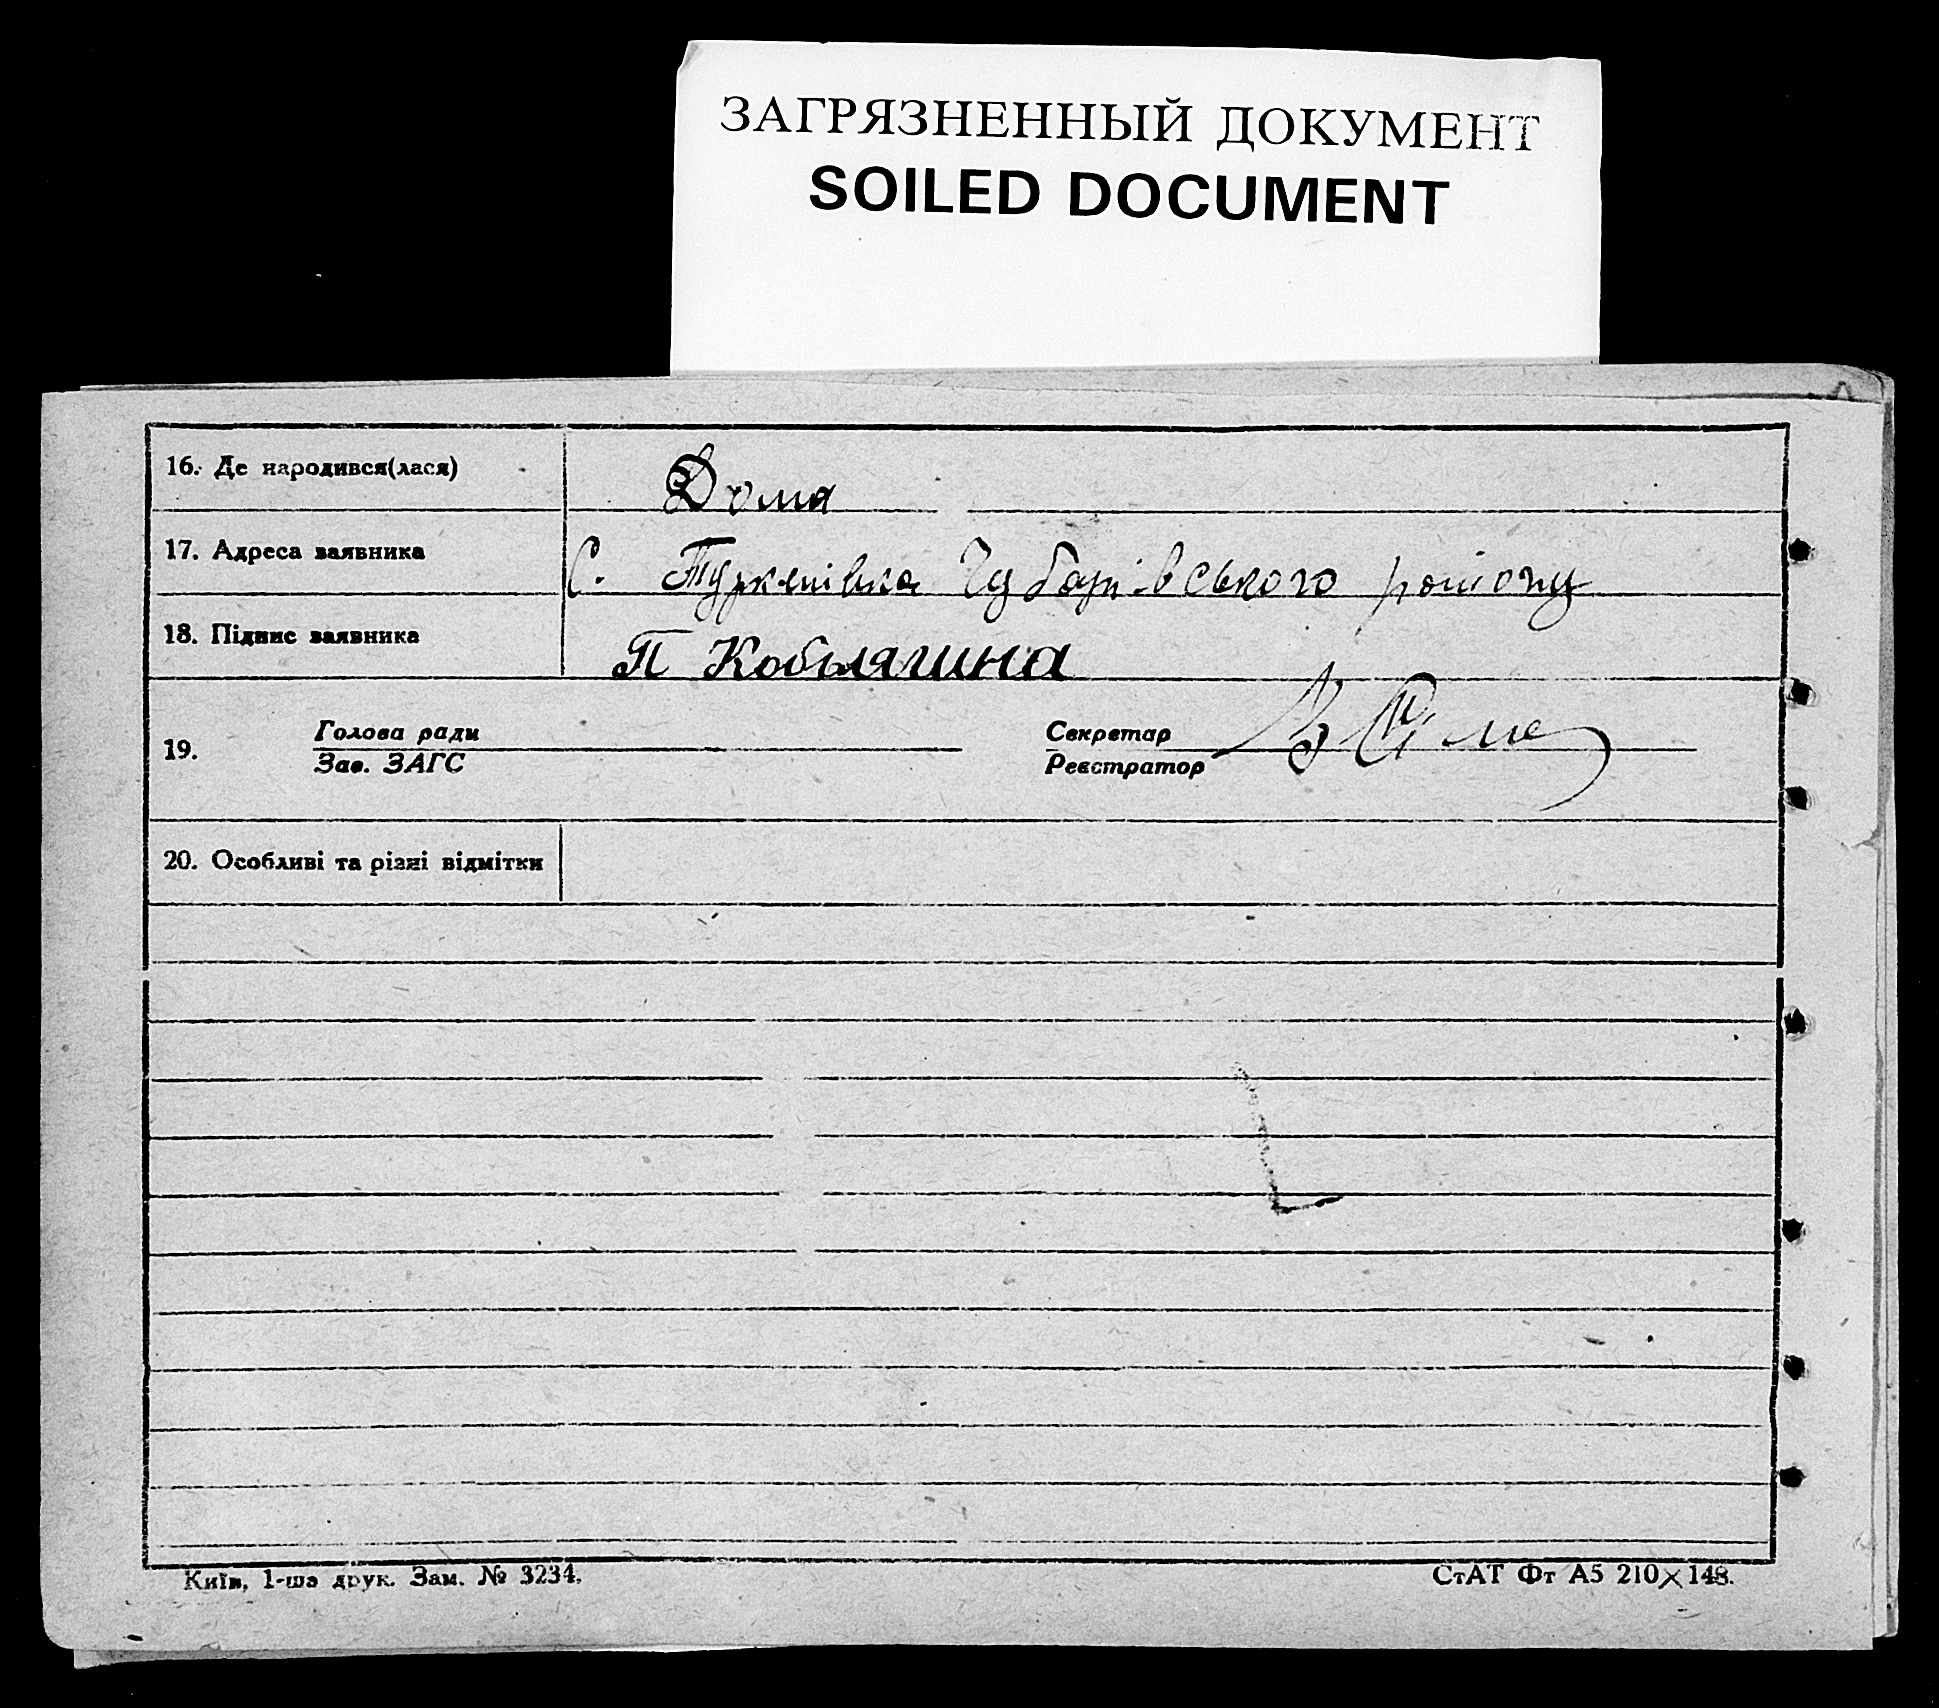 ЗАГРЯЗНЕННЫЙ ДОКУМЕНТ
SOILED DOCUMENT
16. Де народився(лася) Дома
17. Адреса заявника С. Туркенівка Чубарівського району
18. Підпис заявника П Кобылягина
19. Голова ради Секретар
Зав. ЗАГС Реєстратор
20. Особливі та різні відмітки
Київ, 1-ша друк. Зам. № 3234. СтАТ Фт А5 210×148.